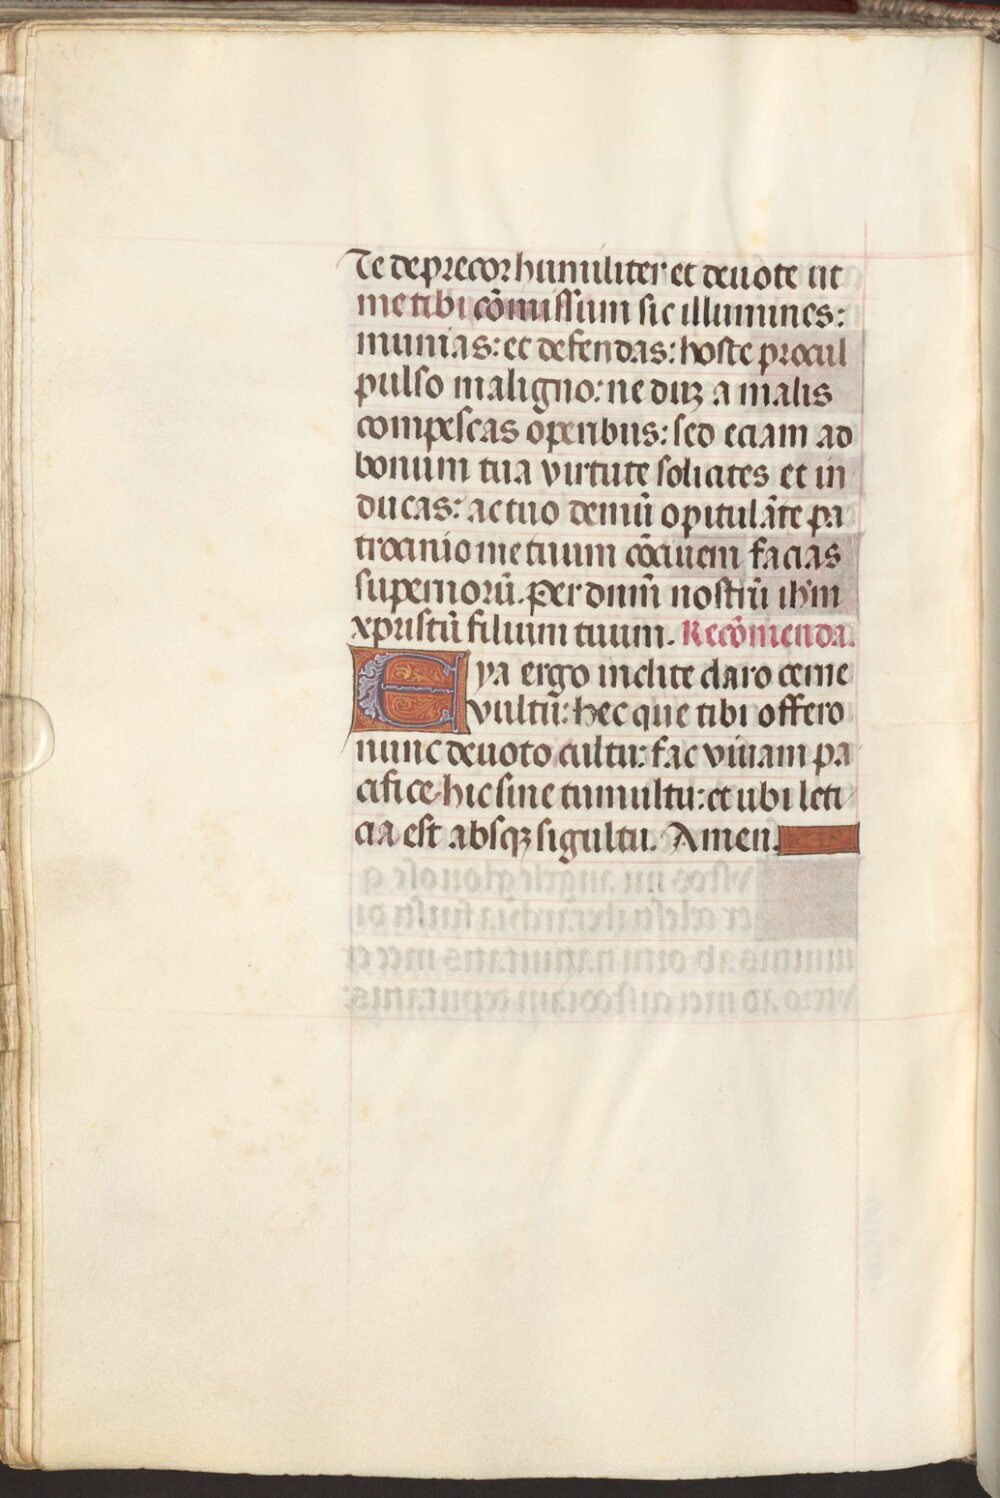 Te deprecor humiliter et deuote ut
me tibi cõmissum sic illumines:
munias: et defendas: hoste procul
pulso maligno: ne duꝫ a malis
compescas operibus: sed eciam ad
bonum tua virtute solicites et in
ducas: ac tuo demũ opitulãte pa
trocinio me tuum cõciuem facias
supernorũ. Per dnm̃ nostrũ ihm̃
xpristũ filium tuum. Recõmenda.
Eya ergo inclite claro cerne
vultũ: hec que tibi offero
nunc deuoto cultu: fac viuam pa
cifice hic sine tumultu: et ubi leti
cia est absqꝫ sigultu. Amen.